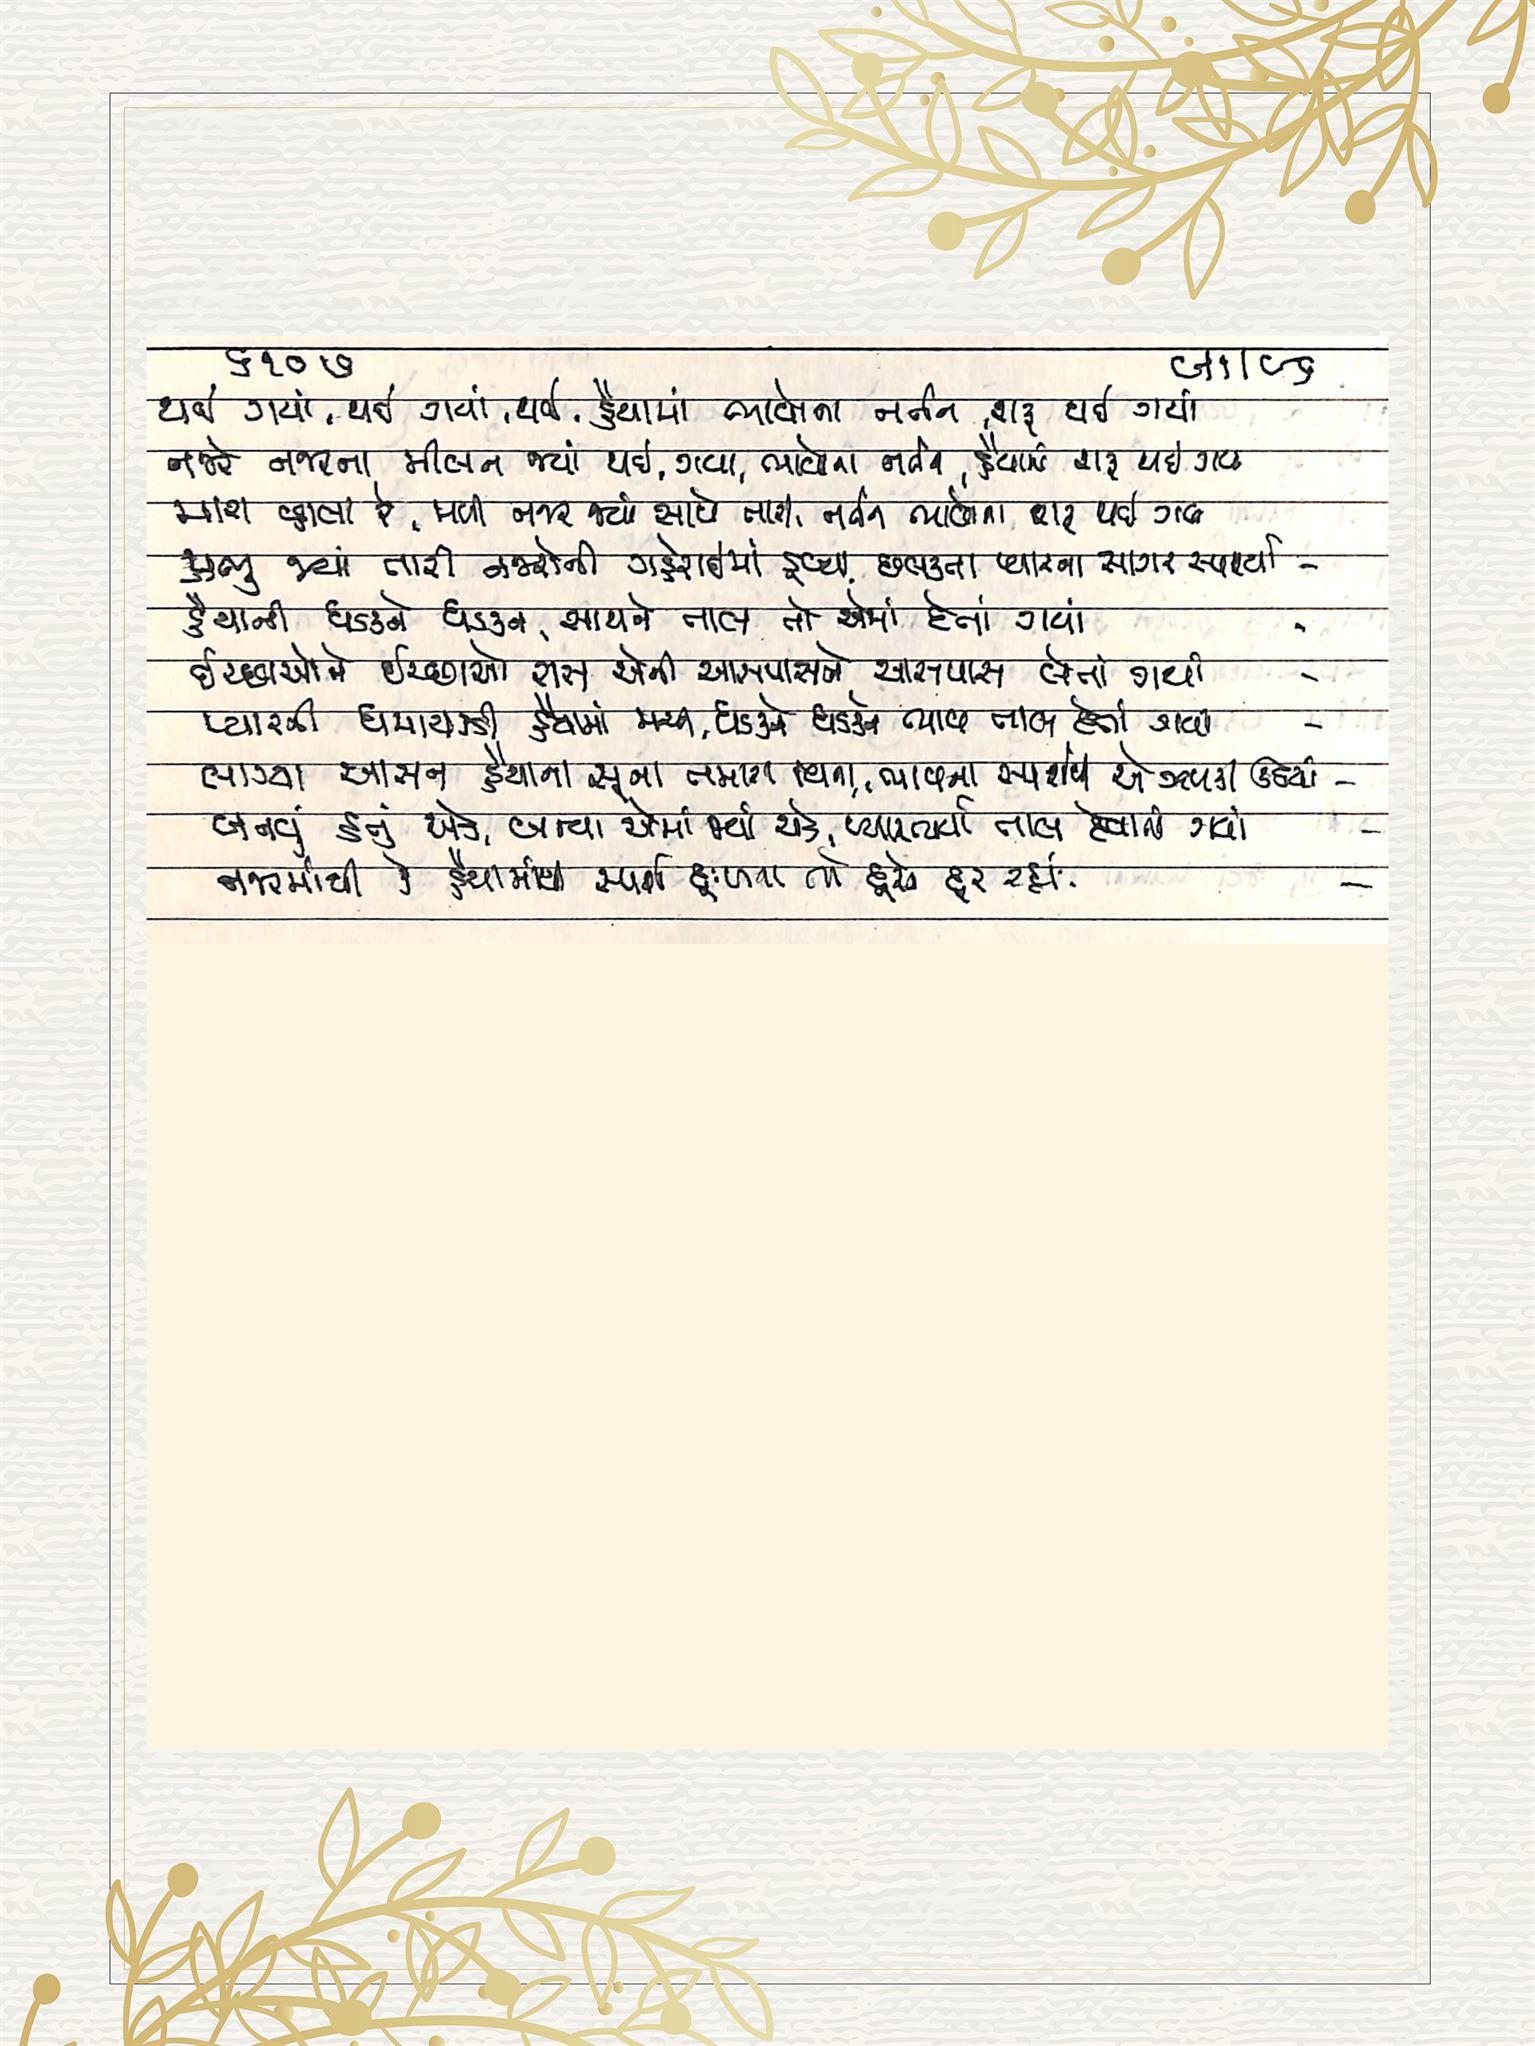 ૬૧૦૭
થઈ ગયાં, થઈ ગયાં, થઈ, હૈયામાં ભાવોના નર્તન, શરૂ થઈ ગયાં
નજરે નજરના મીલન જ્યાં થઈ, ગયા, ભાવોના નર્તન, હૈયામાં શરૂ થઈ ગયા
મારા વ્હાલા રે, મળી નજર જ્યાં સાથે તારી, નર્તન ભાવોના શરૂ થઈ ગયા
પ્રભુ જ્યાં તારી નજરોની ગહેરાઈમાં ડૂબ્યા, છલકતા પ્યારના સાગર સ્પર્શ્યા -
હૈયાની ધડકને ધડકન, સાથને તાલ તો એમાં દેતાં ગયાં -
ઈચ્છાઓને ઈચ્છાઓ રાસ એની આસપાસને આસપાસ લેતાં ગયાં -
પ્યારની ધમાચકડી હૈયામાં મચી, ધડકને ધડકને ભાવ તાલ દેતાં ગયાં -
લાગ્યા આસન હૈયાના સૂના તમારા વિના, ભાવના સ્પર્શથી એ ઝબકી ઉઠયાં -
બનવું હતું એક, બન્યા એમાં જ્યાં એક, પ્યારભર્યા તાલ દેવાતાં ગયાં -
નજરમાંથી કે હૈયામાંથી સ્પર્શ દુઃખના તો દૂરને દૂર રહ્યાં -